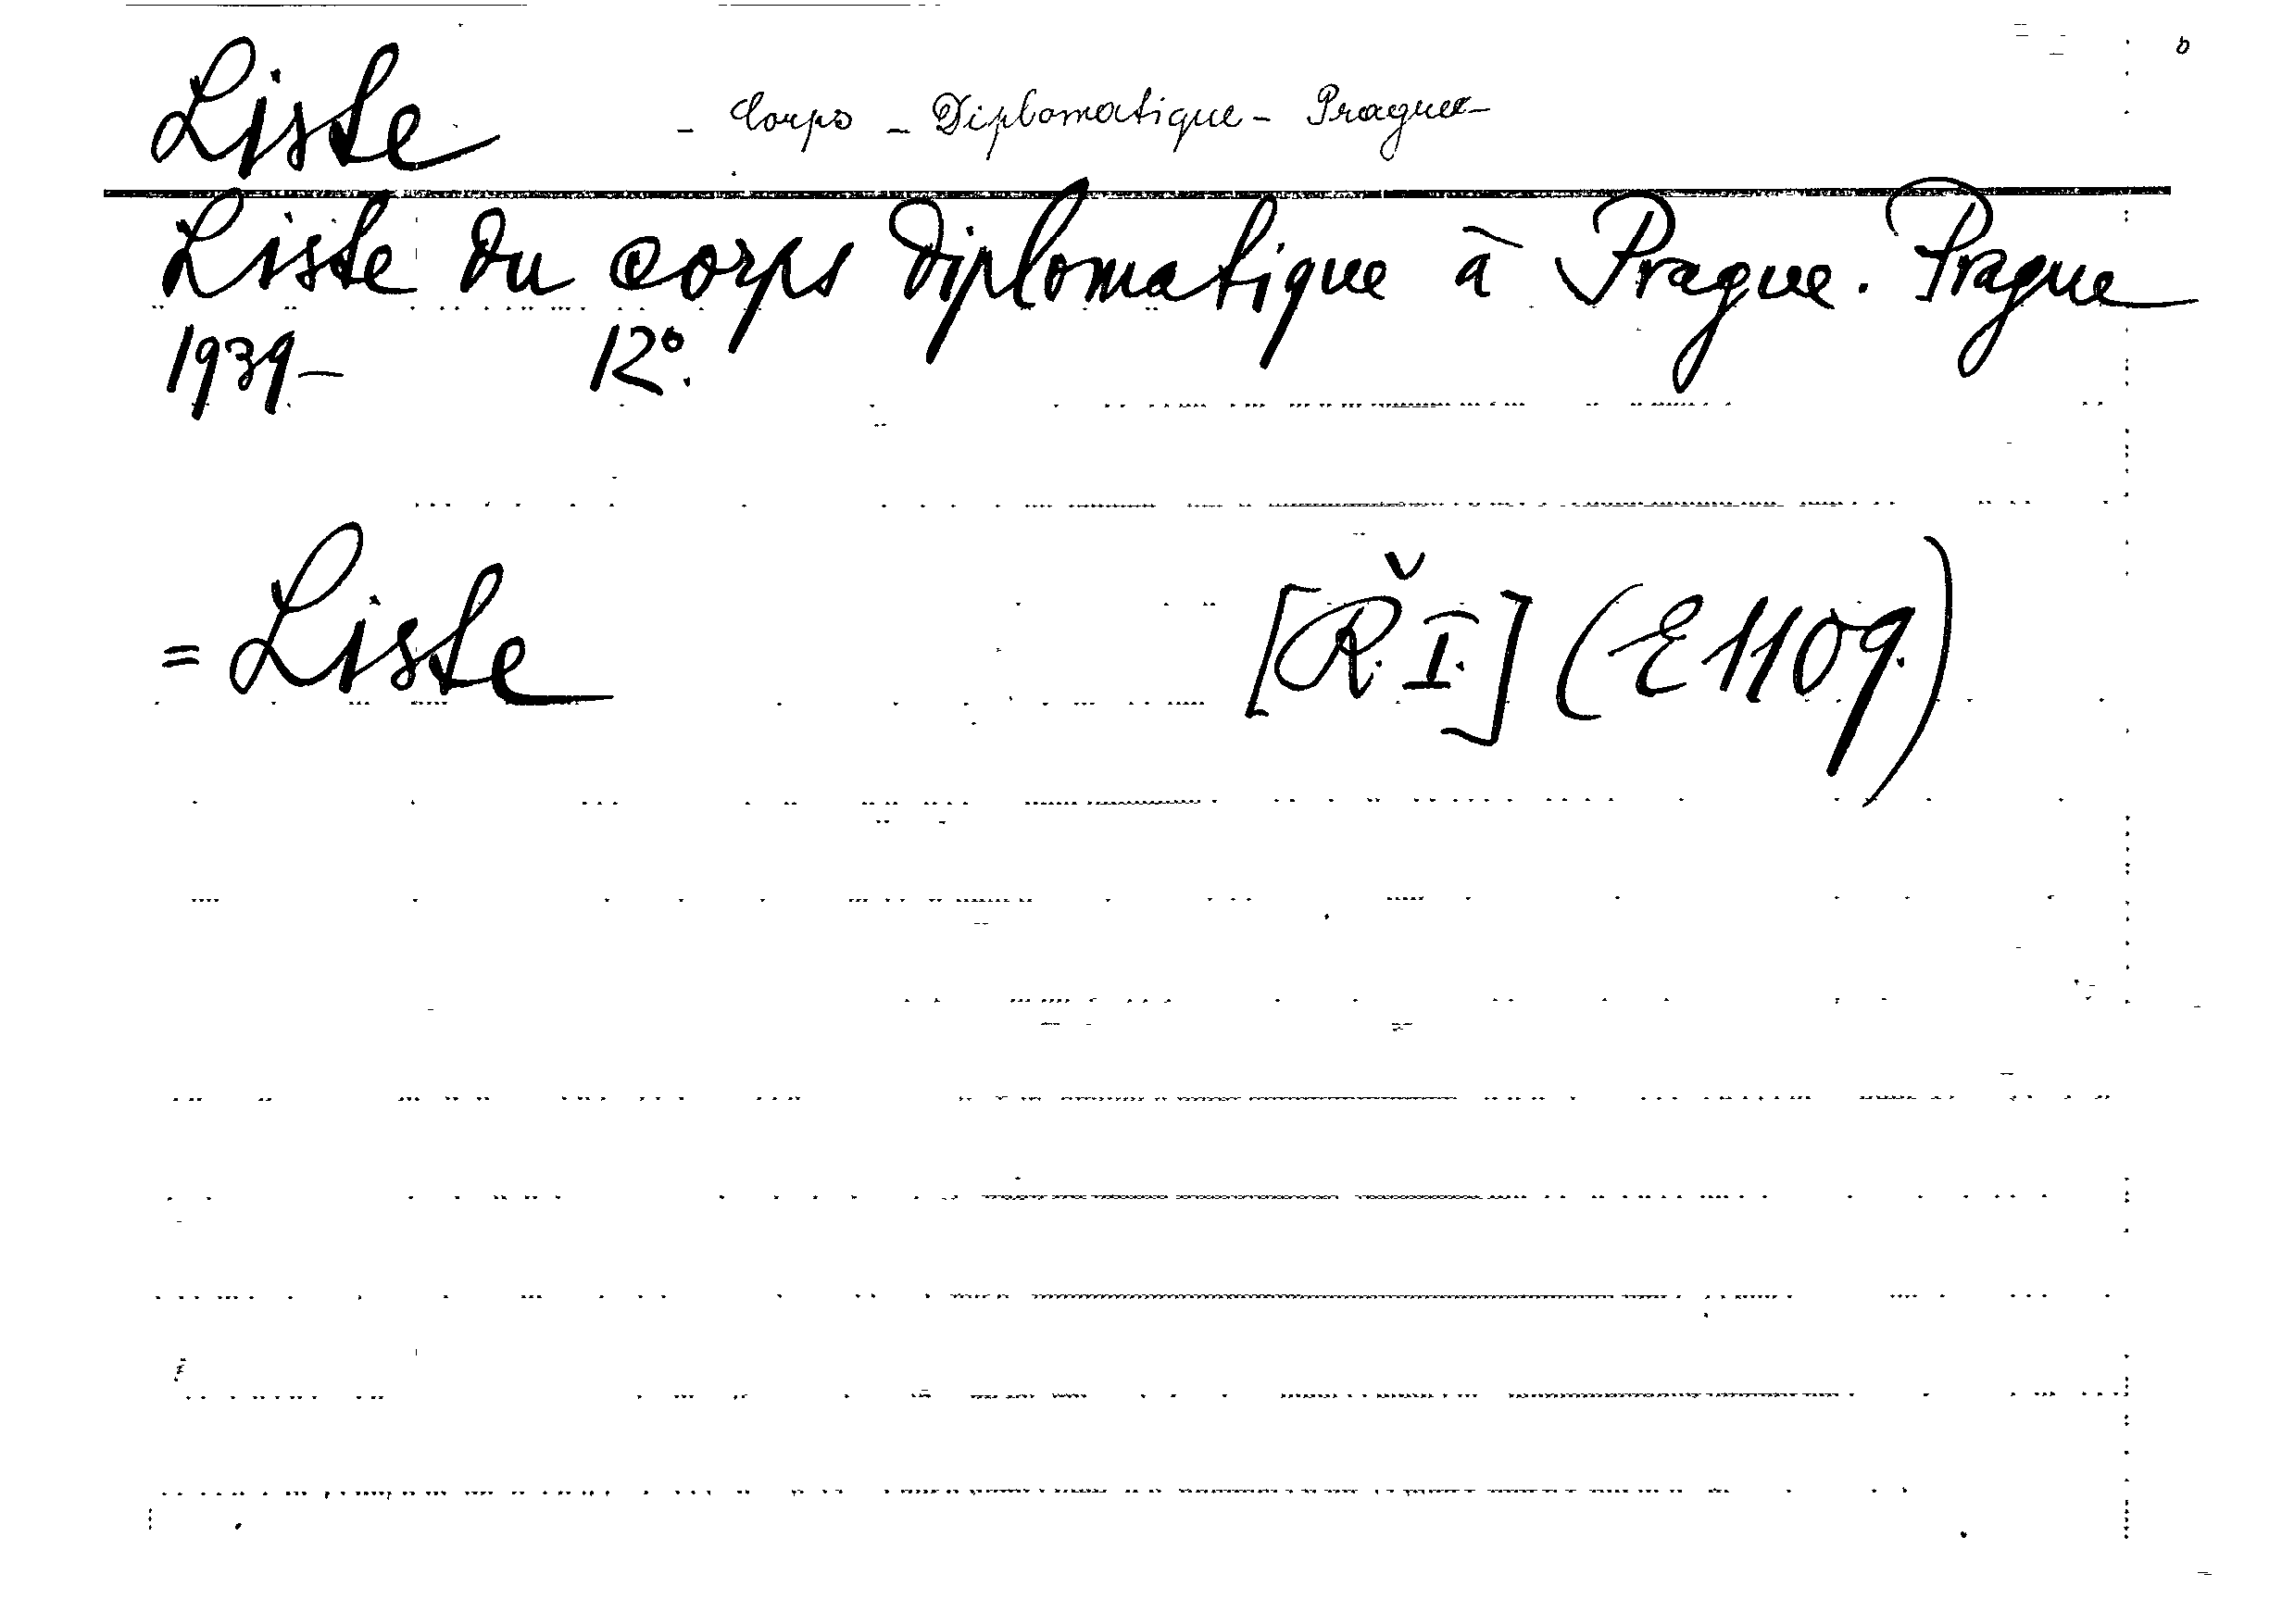 Liste - Corps - Diplomatique - Prague -
Liste du corps diplomatique à Prague. Prague
1939- 12°.
= Liste [Ř.I.] (E1109.)